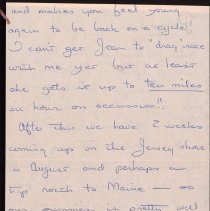 and makes you feel young
again to be back on a cycle!
I can't get Jean to "drag race
with me yet but at least
she gets it up to ten miles
an hour on occassion"!
After this we have 2 weeks
coming up on the Jersey shore
in August and perhaps a
trip north to Maine — so
our summer is pretty well